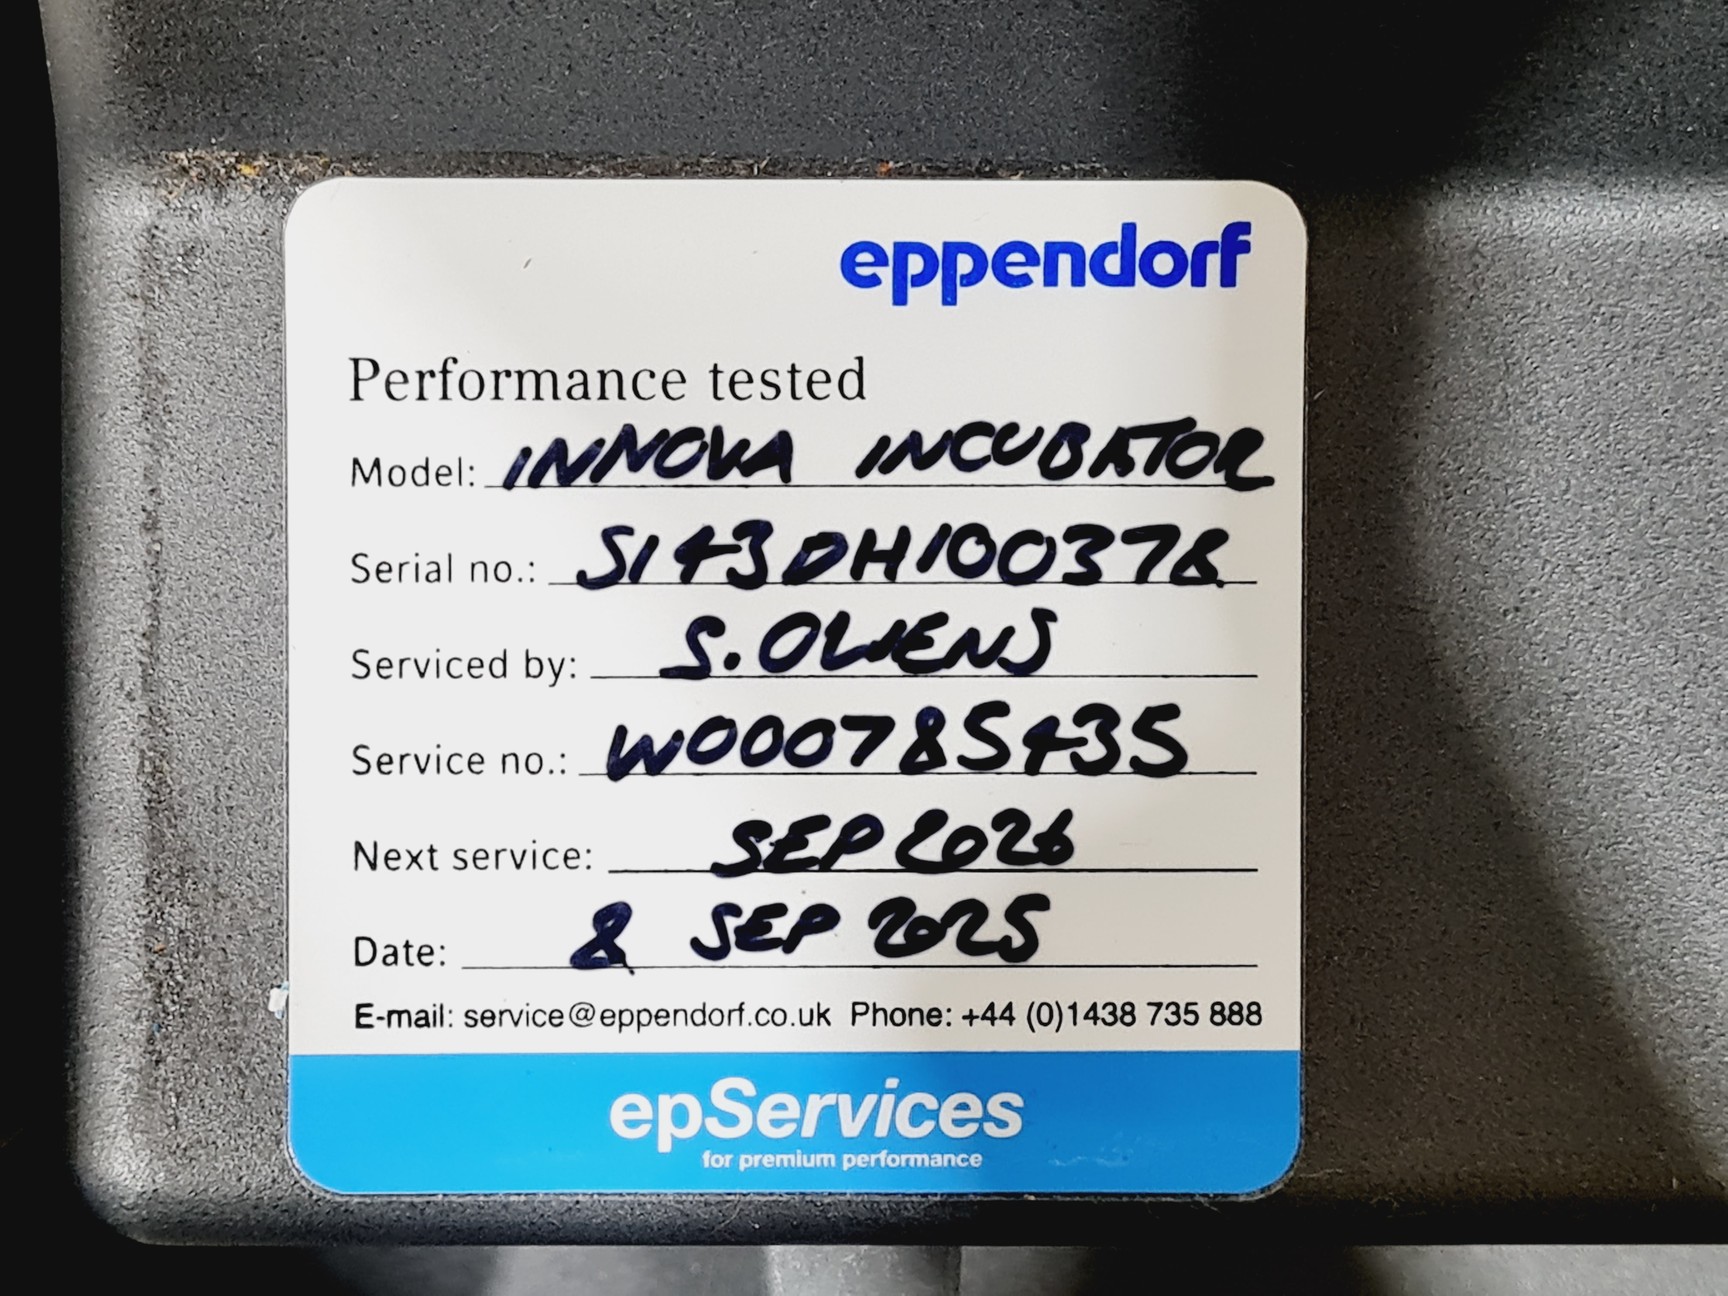 eppendorf
Performance tested
Model: INNOVA INCUBATOR
Serial no.: S143DH100378
Serviced by: S. OWENS
Service no.: W000785435
Next service: SEP 2026
Date: 8 SEP 2025
E-mail: service@eppendorf.co.uk Phone: +44 (0)1438 735 888
epServices
for premium performance